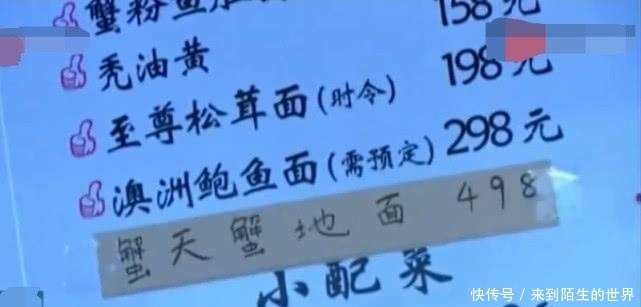 蟹粉鱼
秃油黄 158元
至尊松茸面(时令) 198元
澳洲鲍鱼面(需预定) 298元
蟹天蟹地面 498
小配菜
快传号 / 来到陌生的世界